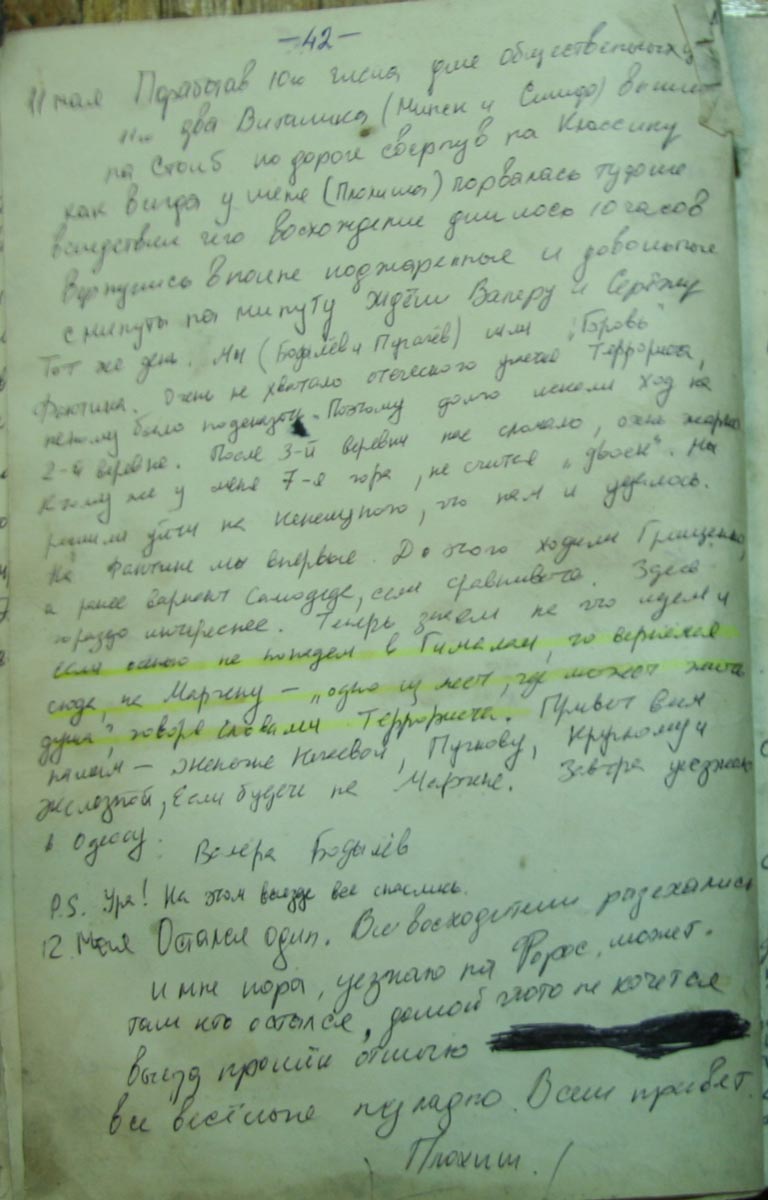 -42-
11 мая Поработав юн гиена для общественных
два Виталика (Минск и Симф) вышли
на Столб по дороге свернув на Классику
как всегда у меня (Плохиша) порвалась туфля
вследствии чего восхождение длилось 10 часов
вернулись вполне поджаренные и довольные
с минуты на минуту ждём Валеру и Серёжу
Тот же день. Мы (Бодылёв и Пугачёв) шли
Фантика. Очень не хватало отеческого Террориста,
некому было подсказать. Поэтому долго искали ход на
2-й верёвке. После 3-й верёвки нас сломало, очень жарко
К тому же у меня 7-я гора, не считая „двоек". Мы
решили уйти на, что нам и удалось.
На Фантике мы впервые. До этого ходили Грищенко,
а ранее вариант Самодеда, если сравнивать. Здесь
гораздо интереснее. Теперь знаем на что идем и
если осенью не попадем в Гималаи, то вернёмся
сюда, на Марчеку – „одно из мест, где может жить
душа", говоря словами Террориста. Привет всем
нашим –, Пучкову, Круглому и
Железной, если будете на Марчеке. Завтра уезжаем
в Одессу.
Валера Бодылёв
P.S. Ура! На этом выезде все спаслись.
12 Мая Остался один. Все восходители разъехались
и мне пора, уезжаю на Форос, может
там кто остался, домой что-то не хочется
выезд прошёл отлично
все весёлые поз ладно. Всем привет.
Плохиш.